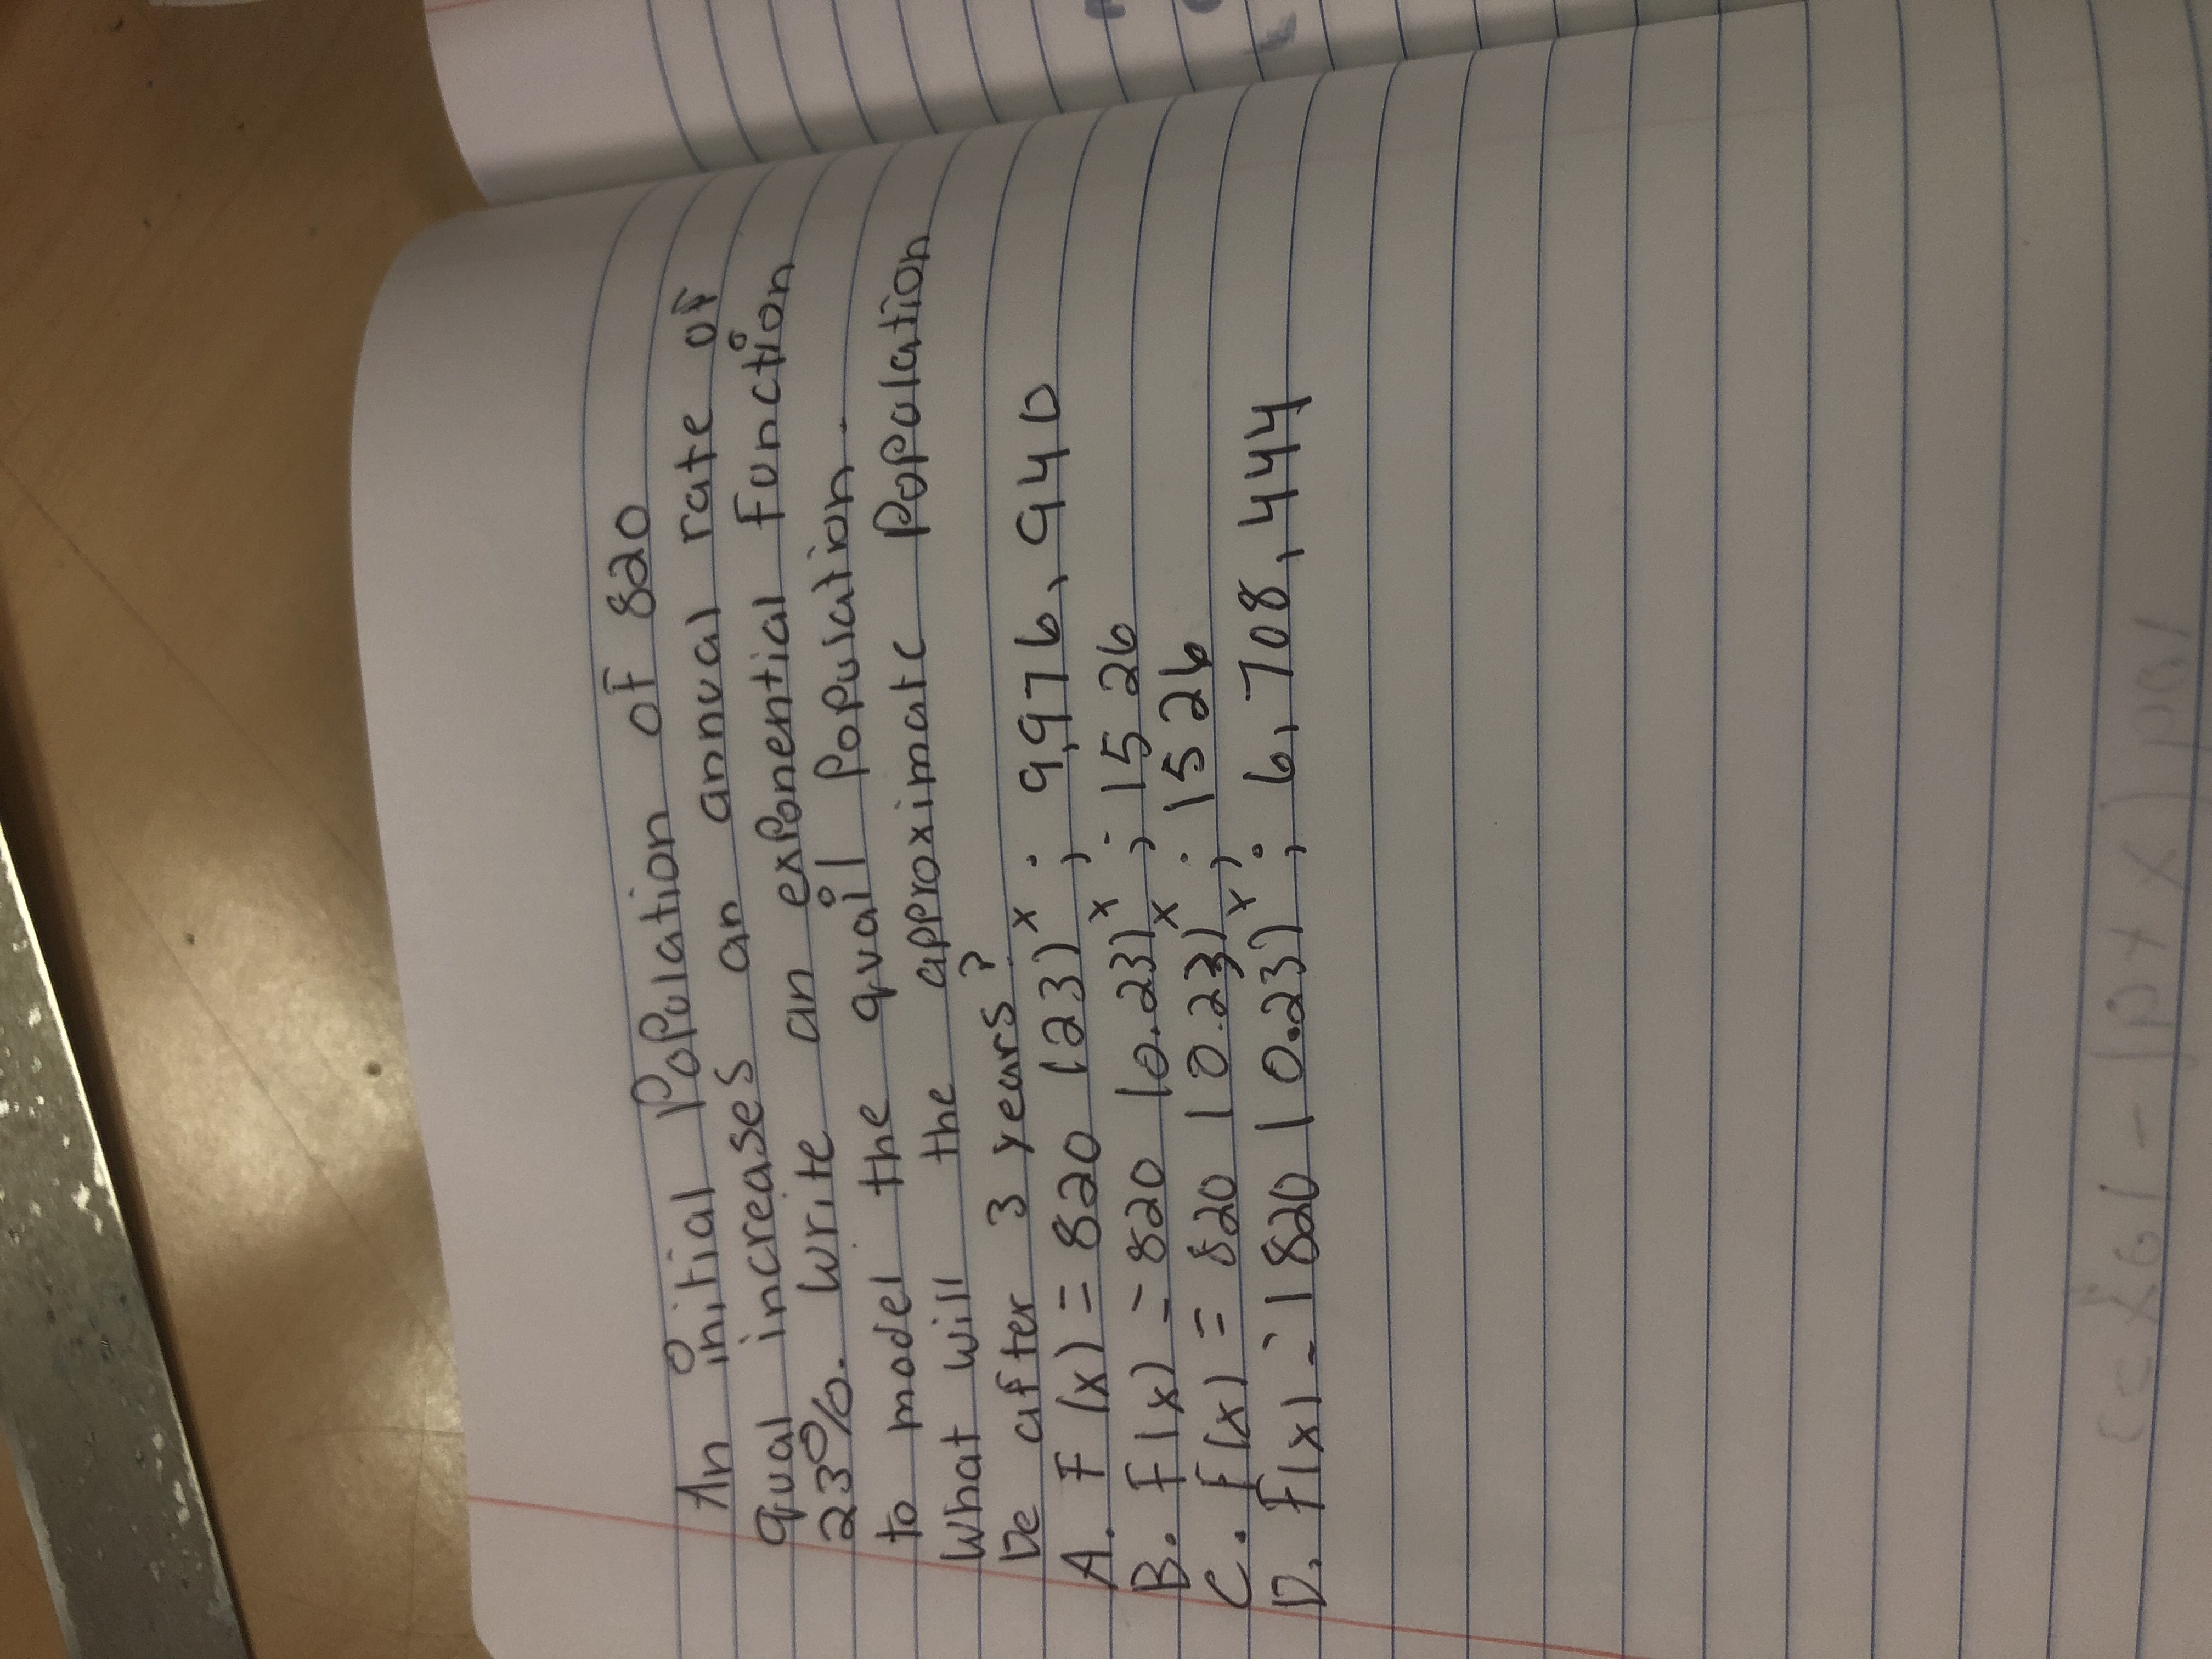 An initial Population of 820
quail increases an annual rate of
23%. Write an exponential function
to model the quail Population.
What will the approximate Population
be after 3 years?
A. F(x) = 820 (23)^x ; 9,976,940
B. F(x) = 820 (0.23)^x ; 1526
C. F(x) = 820 (0.23)^x ; 1526
D. F(x) = (820 (0.23)^x ; 6,708,444